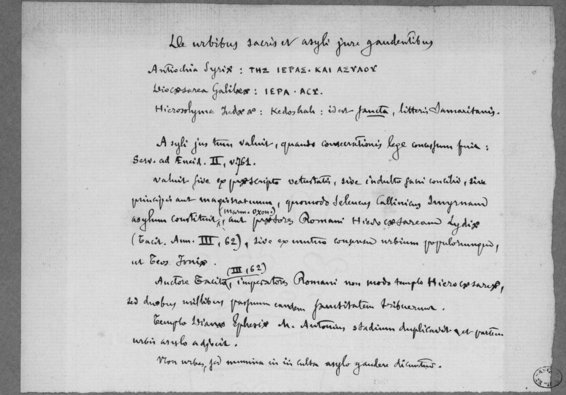 De urbibus sacris et asyli jure gaudentibus
Antiochia Syriæ : ΤΗΣ ΙΕΡΑΣ · ΚΑΙ ΑΣΥΛΟΥ
Diocæsarea Galileæ : ΙΕΡΑ · ΑΣΥ.
Hierosolyma Judææ : Kedoshah : id est sancta, litteris Samaritanis.
Asyli jus tum valuit, quando consecrationis lege concessum fuit :
Serv. ad Æneid. II, v. 761.
Valuit sive ex præscripto vetustatis, sive indulto sacri concilii, sive
principis aut magistratuum, quomodo Seleucus Callinicus Smyrnam
(Marm. Oxon.)
asylum constituit, aut prætores Romani Hierocæsaream Lydiæ
(Tacit. Ann. III, 62), sive ex mutuo consensu urbium populorumque,
ut Teos Ioniæ.
(III, 62)
Auctore Tacito, imperatores Romani non modo templo Hierocæsareæ,
sed duobus millibus passuum eandem sanctitatem tribuerunt.
Templo Dianæ Ephesiæ M. Antonius stadium duplicavit et partem
urbis asylo adjecit.
Non urbes, sed numina in iis culta asylo gaudere dicuntur.